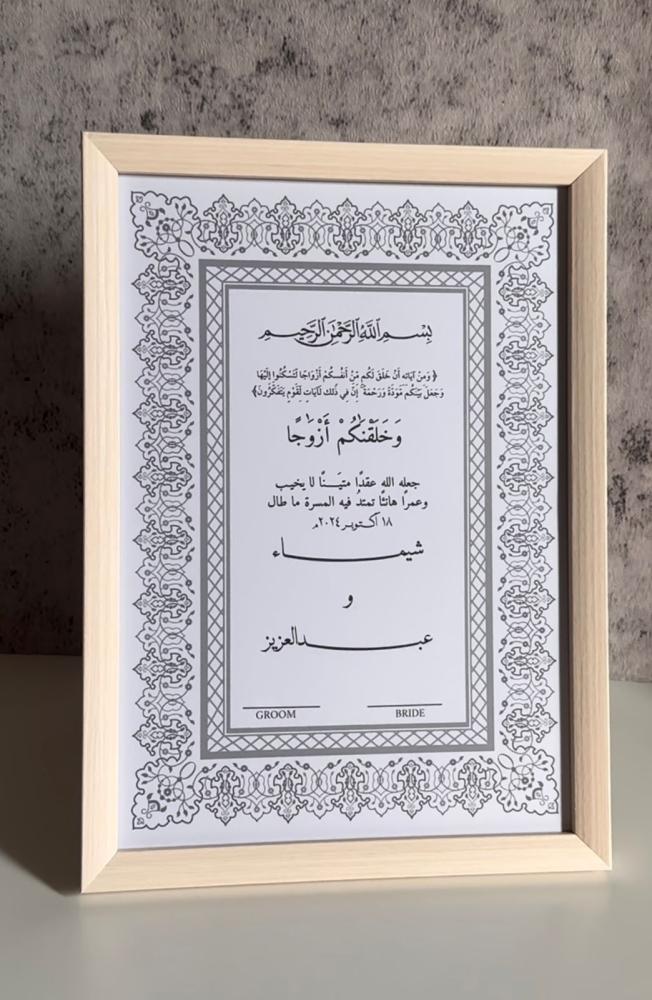 بِسْمِ ٱللَّهِ ٱلرَّحْمَٰنِ ٱلرَّحِيمِ
﴿ وَمِنْ آيَاتِهِ أَنْ خَلَقَ لَكُم مِّنْ أَنفُسِكُمْ أَزْوَاجًا لِّتَسْكُنُوا إِلَيْهَا
وَجَعَلَ بَيْنَكُم مَّوَدَّةً وَرَحْمَةً ۚ إِنَّ فِي ذَٰلِكَ لَآيَاتٍ لِّقَوْمٍ يَتَفَكَّرُونَ﴾
وَخَلَقْنَٰكُمْ أَزْوَٰجًا
جعله الله عقدًا متيَـــنًا لا يخيب
وعمرًا هانئًا تمتدُ فيه المسرة ما طال
١٨ أكتوبر ٢٠٢٤م
شيمـــــاء
و
عبـــدالعزيز
GROOM BRIDE